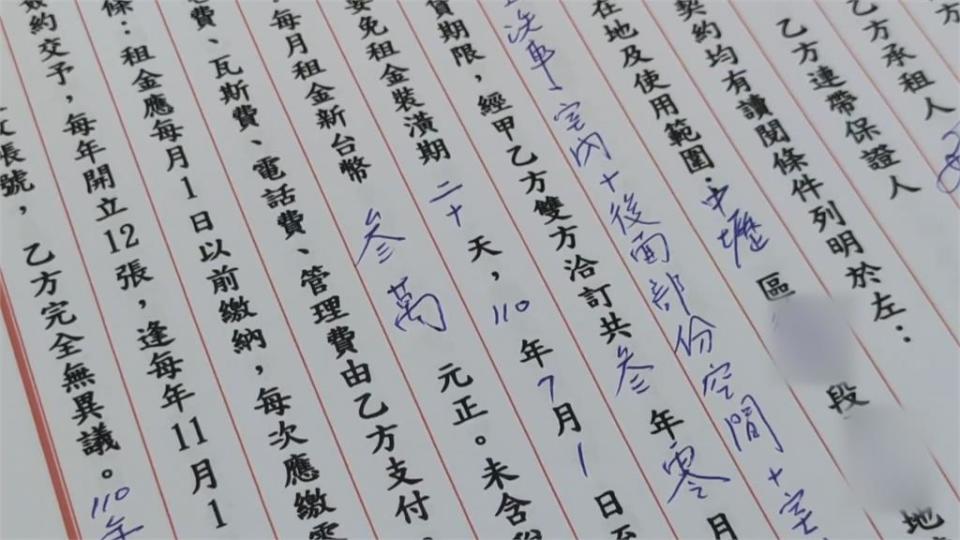 方
乙方承租人
乙方連帶保證人
契約均有讀閱條件列明於左：
在地及使用範圍：中壢區 段 地
洗車、室內+後面部份空間+室
賃期限，經甲乙方雙方洽訂共叁年零月
免租金裝潢期二十天，110年7月1日至
每月租金新台幣叁萬元正。未含
費、瓦斯費、電話費、管理費由乙方支付
條：租金應每月1日以前繳納，每次應繳
約交予，每年開立12張，逢每年11月1
號，乙方完全無異議。110年